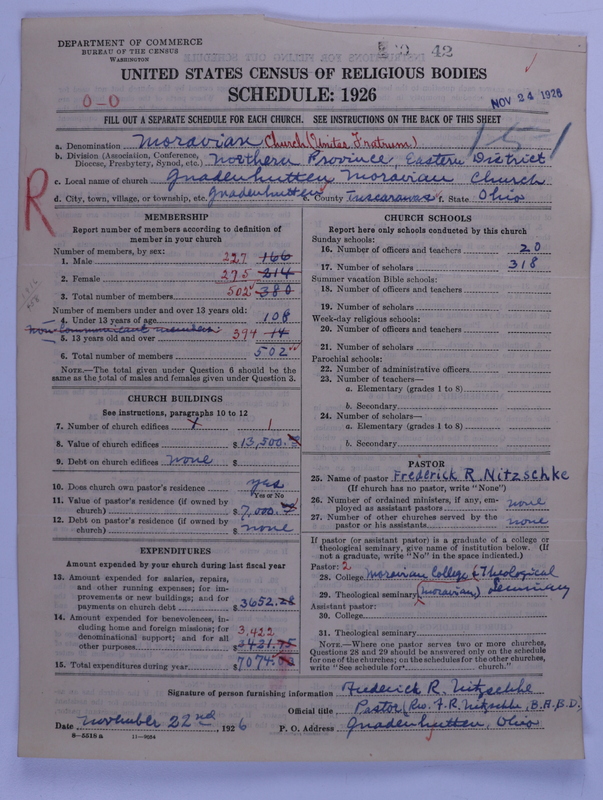 DEPARTMENT OF COMMERCE
BUREAU OF THE CENSUS
WASHINGTON
42
UNITED STATES CENSUS OF RELIGIOUS BODIES
SCHEDULE: 1926
0-0
NOV 24 1926
FILL OUT A SEPARATE SCHEDULE FOR EACH CHURCH. SEE INSTRUCTIONS ON THE BACK OF THIS SHEET
a. Denomination Moravian Church (Unitas Fratrum)
b. Division (Association, Conference, Diocese, Presbytery, Synod, etc.) Northern Province, Eastern District
c. Local name of church Gnadenhutten Moravian Church
d. City, town, village, or township, etc. Gnadenhutten e. County Tuscarawas f. State Ohio
R
MEMBERSHIP
Report number of members according to definition of
member in your church
Number of members, by sex:
1. Male 227 166
2. Female 275 214
3. Total number of members 502 380
Number of members under and over 13 years old:
4. Under 13 years of age 108
Non Communicant members
5. 13 years old and over 394 14
6. Total number of members 502
NOTE.—The total given under Question 6 should be the
same as the total of males and females given under Question 3.
CHURCH BUILDINGS
See instructions, paragraphs 10 to 12
7. Number of church edifices 1
8. Value of church edifices $13,500.
9. Debt on church edifices none $
10. Does church own pastor's residence yes
Yes or No
11. Value of pastor's residence (if owned by
church) $7,000.
12. Debt on pastor's residence (if owned by
church) $none
EXPENDITURES
Amount expended by your church during last fiscal year
13. Amount expended for salaries, repairs,
and other running expenses; for im-
provements or new buildings; and for
payments on church debt $3652.28
14. Amount expended for benevolences, in-
cluding home and foreign missions; for
denominational support; and for all 3,422
other purposes $3421.75
15. Total expenditures during year $7074.
CHURCH SCHOOLS
Report here only schools conducted by this church
Sunday schools:
16. Number of officers and teachers 20
17. Number of scholars 318
Summer vacation Bible schools:
18. Number of officers and teachers
19. Number of scholars
Week-day religious schools:
20. Number of officers and teachers
21. Number of scholars
Parochial schools:
22. Number of administrative officers
23. Number of teachers—
a. Elementary (grades 1 to 8)
b. Secondary
24. Number of scholars—
a. Elementary (grades 1 to 8)
b. Secondary
PASTOR
25. Name of pastor Frederick R. Nitzschke
(If church has no pastor, write "None")
26. Number of ordained ministers, if any, em-
ployed as assistant pastors none
27. Number of other churches served by the
pastor or his assistants none
If pastor (or assistant pastor) is a graduate of a college or
theological seminary, give name of institution below. (If
not a graduate, write "No" in the space indicated.)
Pastor: 2
28. College Moravian College & Theological
29. Theological seminary (Moravian) Seminary
Assistant pastor:
30. College
31. Theological seminary
NOTE.—Where one pastor serves two or more churches,
Questions 28 and 29 should be answered only on the schedule
for one of the churches; on the schedules for the other churches,
write "See schedule for church."
Signature of person furnishing information Frederick R. Nitzschke
Official title Pastor (Rev. F. R. Nitzschke, B.A. B.D.
Date November 22nd, 1926 P. O. Address Gnadenhutten, Ohio
8-5518 a 11-9024